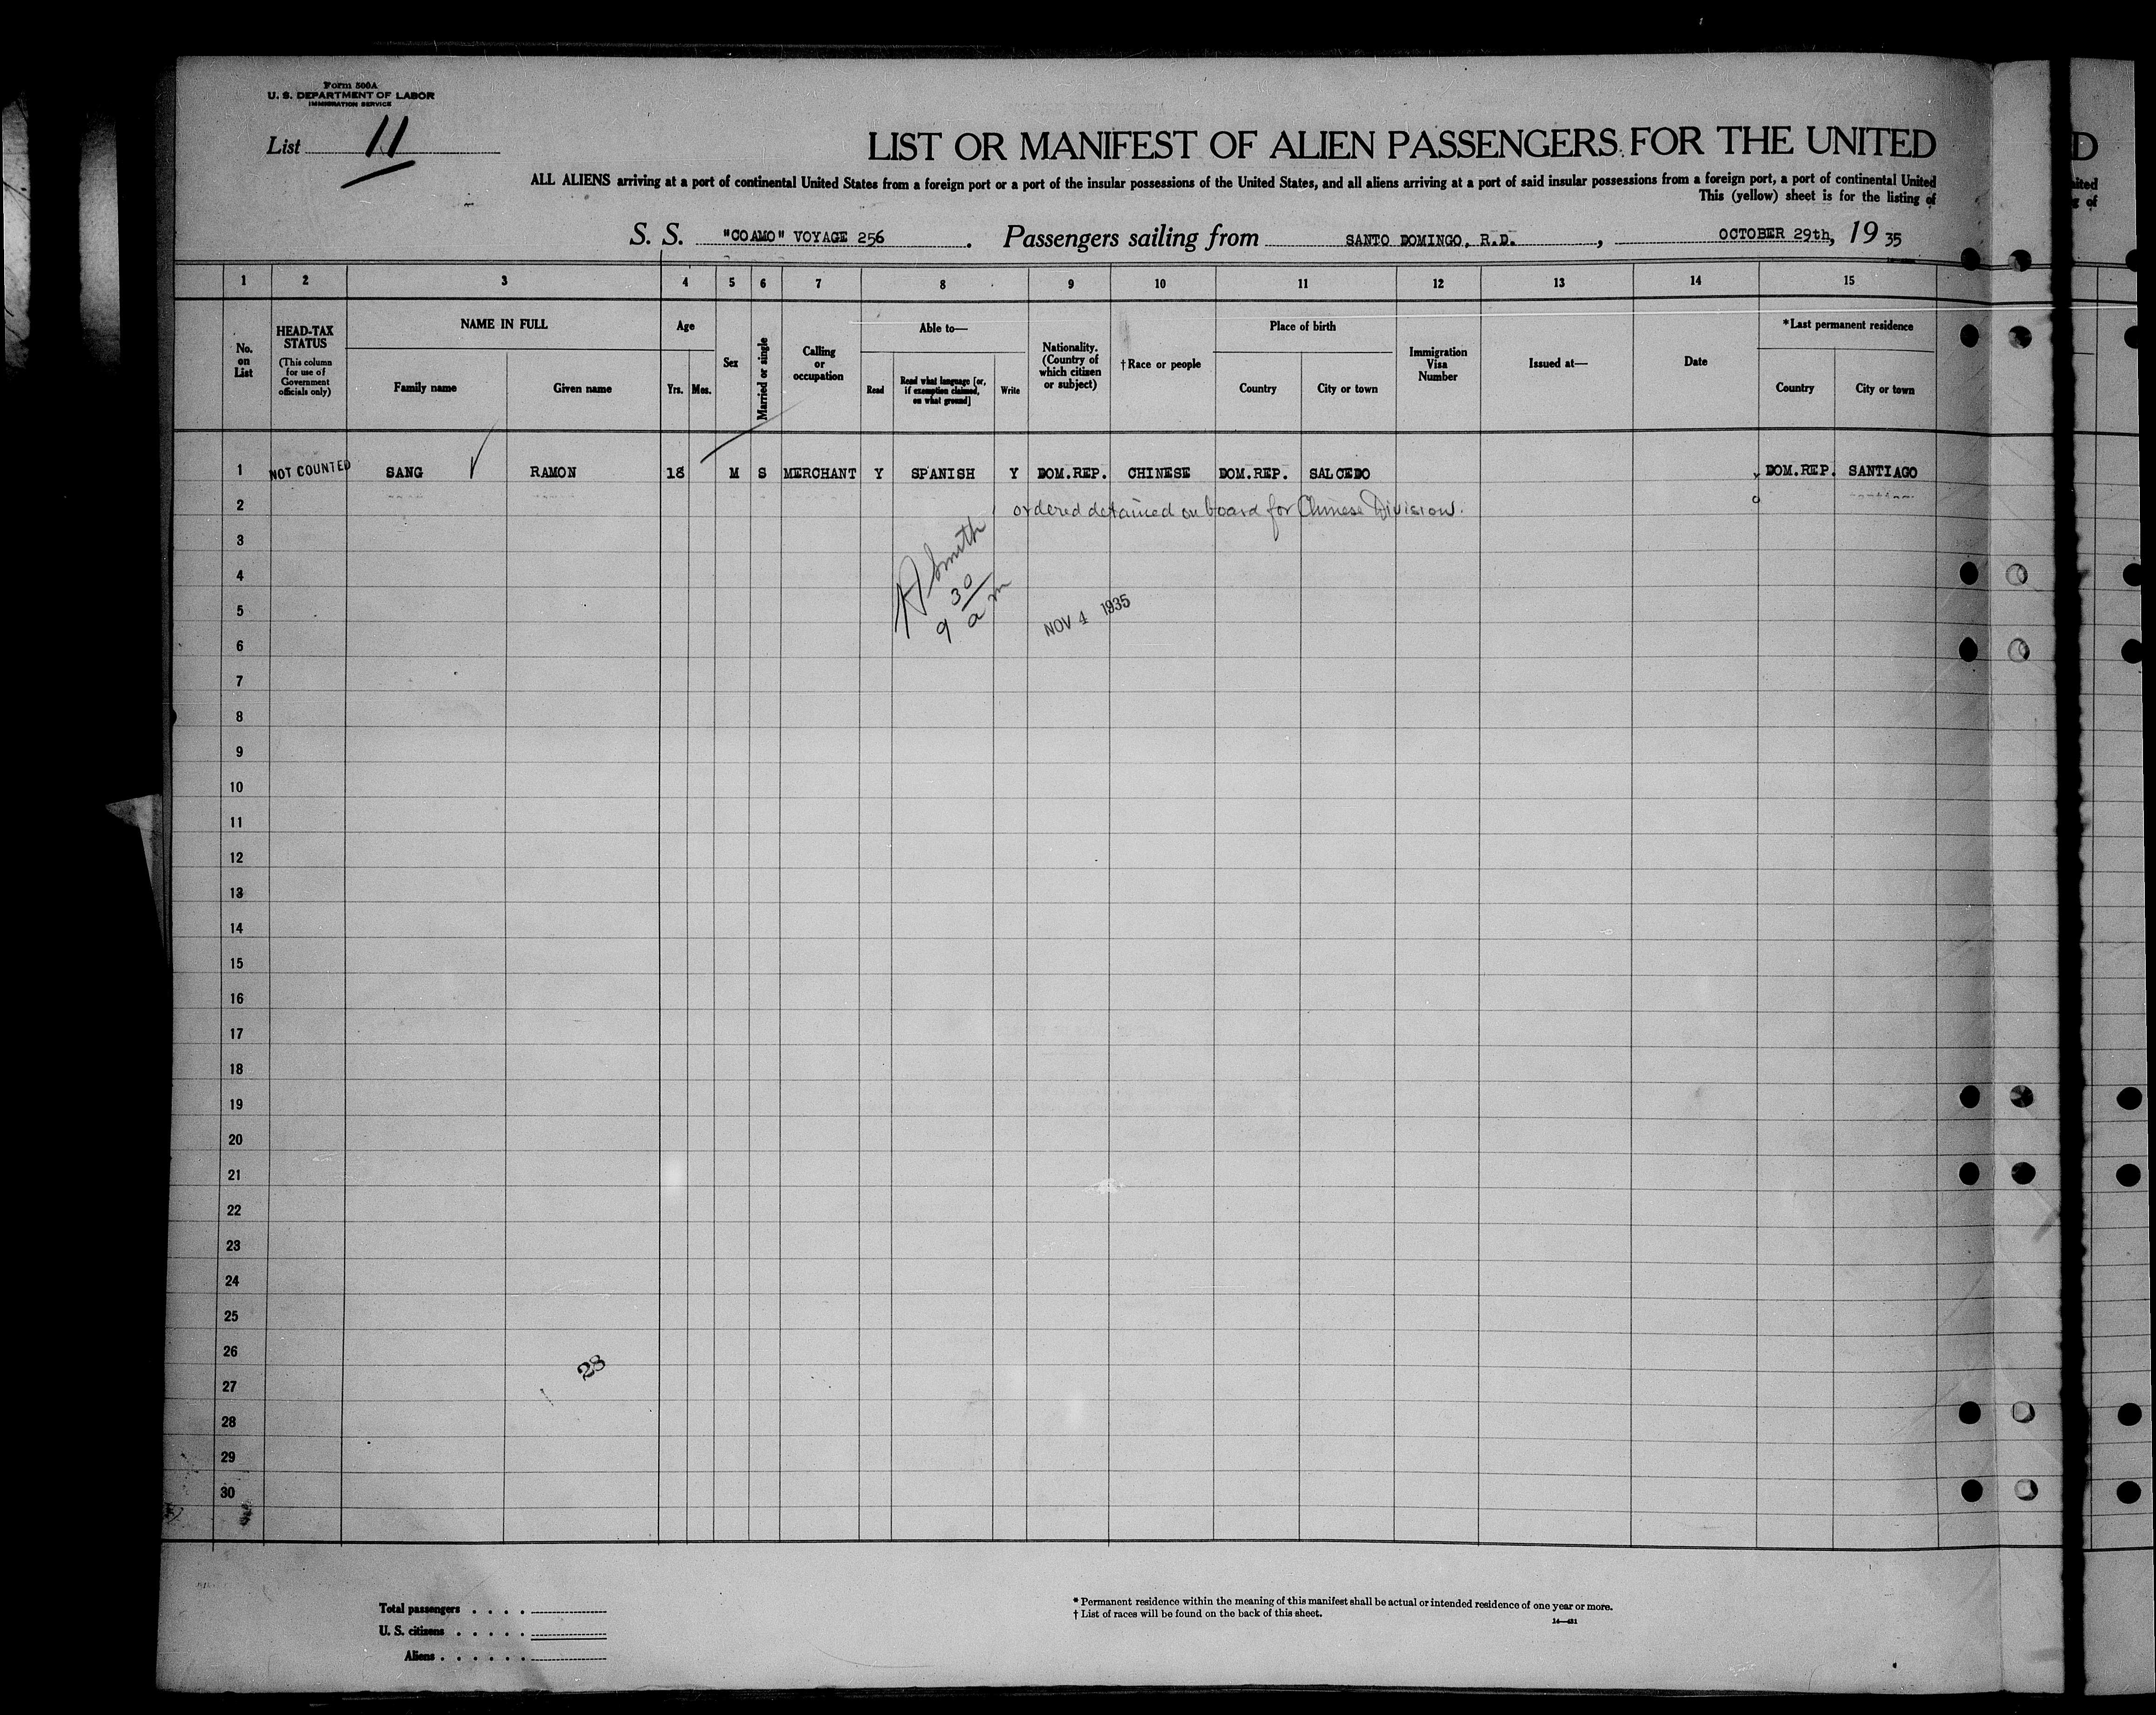 Form 500A
U. S. DEPARTMENT OF LABOR
IMMIGRATION SERVICE
List 11
LIST OR MANIFEST OF ALIEN PASSENGERS FOR THE UNITED
ALL ALIENS arriving at a port of continental United States from a foreign port or a port of the insular possessions of the United States, and all aliens arriving at a port of said insular possessions from a foreign port, a port of continental United
This (yellow) sheet is for the listing of
S. S. "COAMO" VOYAGE 256 . Passengers sailing from SANTO DOMINGO, R.D. , OCTOBER 29th, 19 35
1 2 3 4 5 6 7 8 9 10 11 12 13 14 15
No. on List
HEAD-TAX STATUS
(This column for use of Government officials only)
NAME IN FULL
Family name Given name
Age
Yrs. Mos.
Sex
Married or single
Calling or occupation
Able to—
Read
Read what language [or, if exemption claimed, on what ground]
Write
Nationality. (Country of which citizen or subject)
†Race or people
Place of birth
Country City or town
Immigration Visa Number
Issued at—
Date
*Last permanent residence
Country City or town
1 NOT COUNTED SANG RAMON 18 M S MERCHANT Y SPANISH Y DOM.REP. CHINESE DOM.REP. SALCEDO DOM.REP. SANTIAGO
2 ordered detained on board for Chinese Division.
3
Smith
4
9 30 a m
5
NOV 4 1935
6
7
8
9
10
11
12
13
14
15
16
17
18
19
20
21
22
23
24
25
26
28
27
28
29
30
Total passengers . . . .
U. S. citizens . . . . .
Aliens . . . . . .
* Permanent residence within the meaning of this manifest shall be actual or intended residence of one year or more.
† List of races will be found on the back of this sheet.
14—431